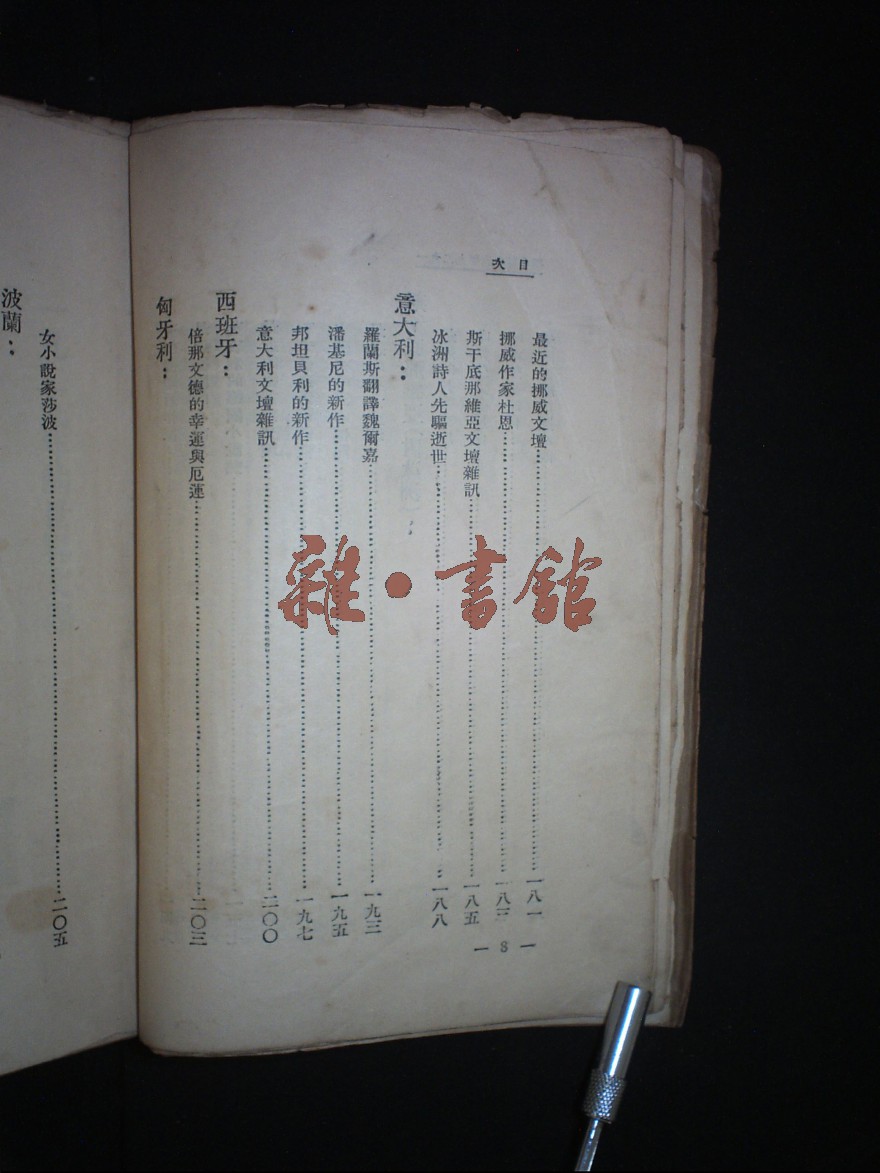 目次
最近的挪威文壇……一八一
挪威作家杜恩……一八三
斯干底那維亞文壇雜訊……一八五
冰洲詩人先驅逝世……一八八
意大利：
羅蘭斯翻譯魏爾嘉……一九三
潘基尼的新作……一九五
邦坦貝利的新作……一九七
意大利文壇雜訊……二〇〇
西班牙：
倍那文德的幸運與厄運……二〇三
匈牙利：
— 8 —
女小說家莎波……二〇五
波蘭：
雜·書館